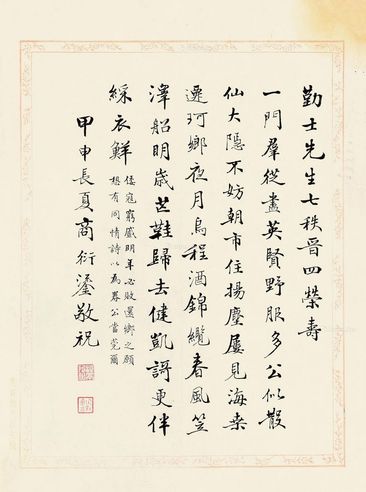 勤士先生七秩晉四榮壽
一門羣從盡英賢野服多公似散
仙大隱不妨朝市住揚塵屢見海桑
遷珂鄉夜月烏程酒錦纜春風笠
澤船明歲芒鞋歸去健凱謌更伴
綵衣鮮
倭寇窮蹙明年必敗還鄉之願
想有同情詩以為券公當莞爾
甲申長夏商衍鎏敬祝